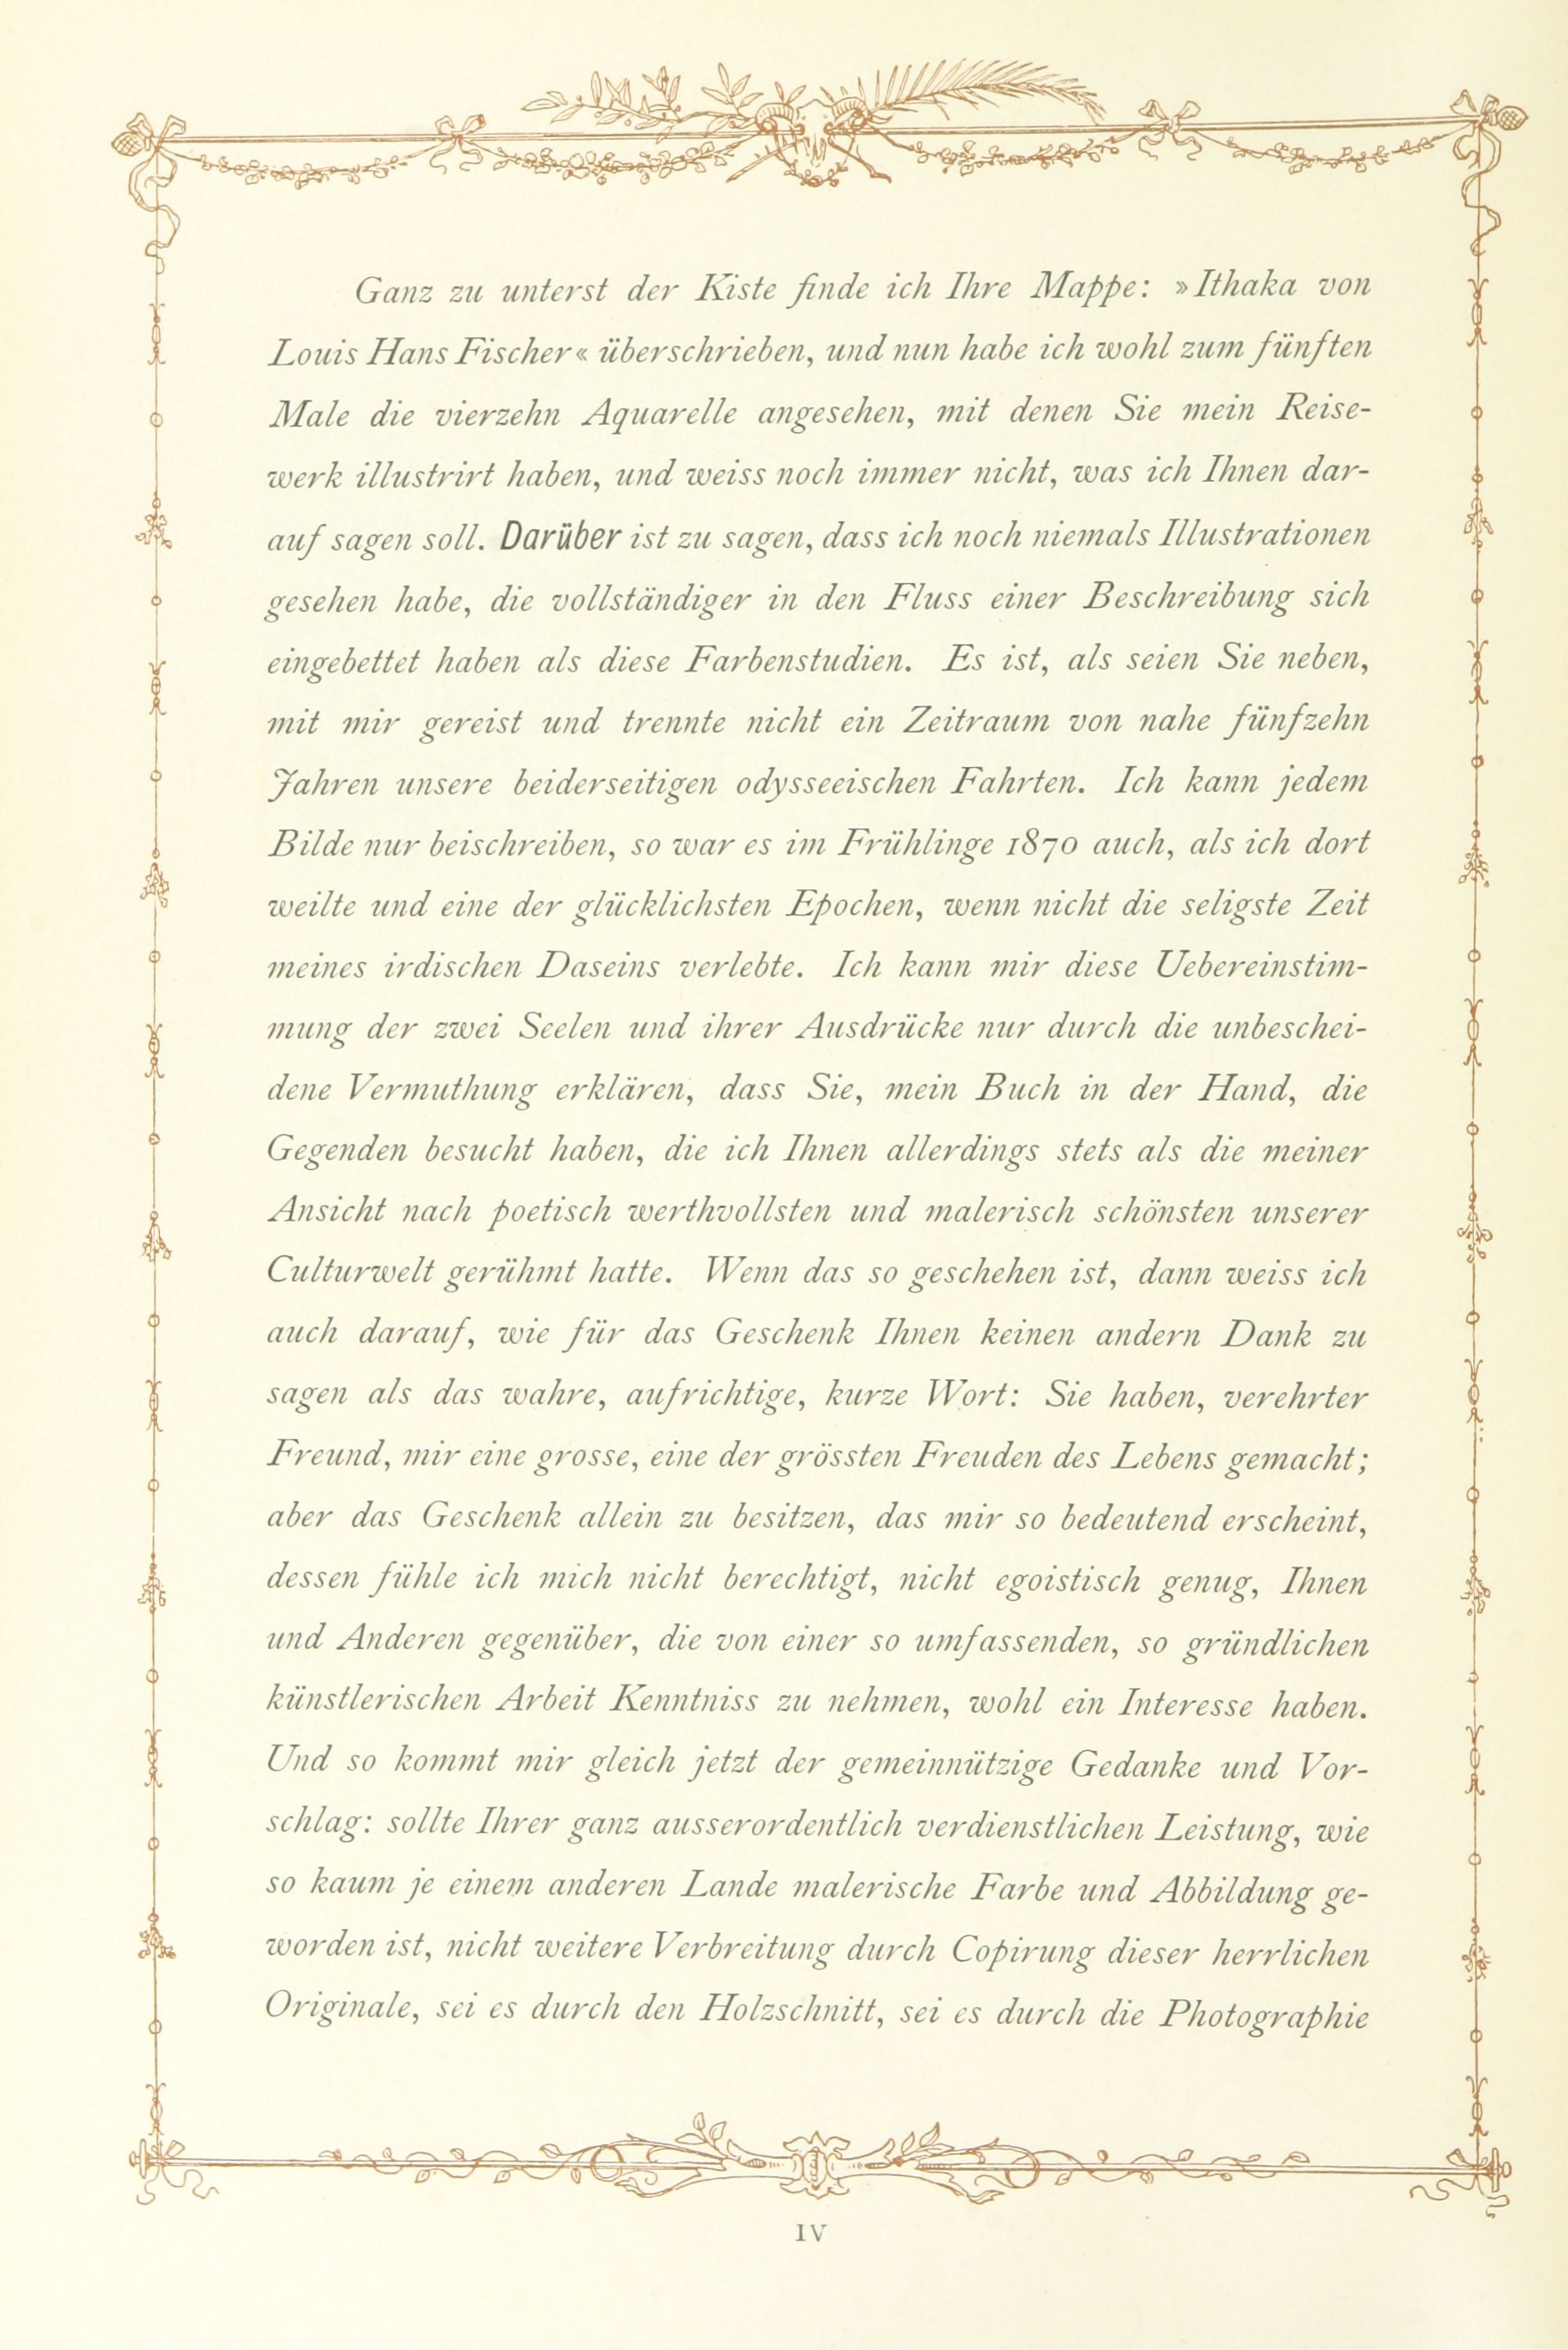 Ganz zu unterst der Kiste finde ich Ihre Mappe: »Ithaka von
Louis Hans Fischer« überschrieben, und nun habe ich wohl zum fünften
Male die vierzehn Aquarelle angesehen, mit denen Sie mein Reise-
werk illustrirt haben, und weiss noch immer nicht, was ich Ihnen dar-
auf sagen soll. Darüber ist zu sagen, dass ich noch niemals Illustrationen
gesehen habe, die vollständiger in den Fluss einer Beschreibung sich
eingebettet haben als diese Farbenstudien. Es ist, als seien Sie neben,
mit mir gereist und trennte nicht ein Zeitraum von nahe fünfzehn
Jahren unsere beiderseitigen odysseeischen Fahrten. Ich kann jedem
Bilde nur beischreiben, so war es im Frühlinge 1870 auch, als ich dort
weilte und eine der glücklichsten Epochen, wenn nicht die seligste Zeit
meines irdischen Daseins verlebte. Ich kann mir diese Uebereinstim-
mung der zwei Seelen und ihrer Ausdrücke nur durch die unbeschei-
dene Vermuthung erklären, dass Sie, mein Buch in der Hand, die
Gegenden besucht haben, die ich Ihnen allerdings stets als die meiner
Ansicht nach poetisch werthvollsten und malerisch schönsten unserer
Culturwelt gerühmt hatte. Wenn das so geschehen ist, dann weiss ich
auch darauf, wie für das Geschenk Ihnen keinen andern Dank zu
sagen als das wahre, aufrichtige, kurze Wort: Sie haben, verehrter
Freund, mir eine grosse, eine der grössten Freuden des Lebens gemacht;
aber das Geschenk allein zu besitzen, das mir so bedeutend erscheint,
dessen fühle ich mich nicht berechtigt, nicht egoistisch genug, Ihnen
und Anderen gegenüber, die von einer so umfassenden, so gründlichen
künstlerischen Arbeit Kenntniss zu nehmen, wohl ein Interesse haben.
Und so kommt mir gleich jetzt der gemeinnützige Gedanke und Vor-
schlag: sollte Ihrer ganz ausserordentlich verdienstlichen Leistung, wie
so kaum je einem anderen Lande malerische Farbe und Abbildung ge-
worden ist, nicht weitere Verbreitung durch Copirung dieser herrlichen
Originale, sei es durch den Holzschnitt, sei es durch die Photographie
IV